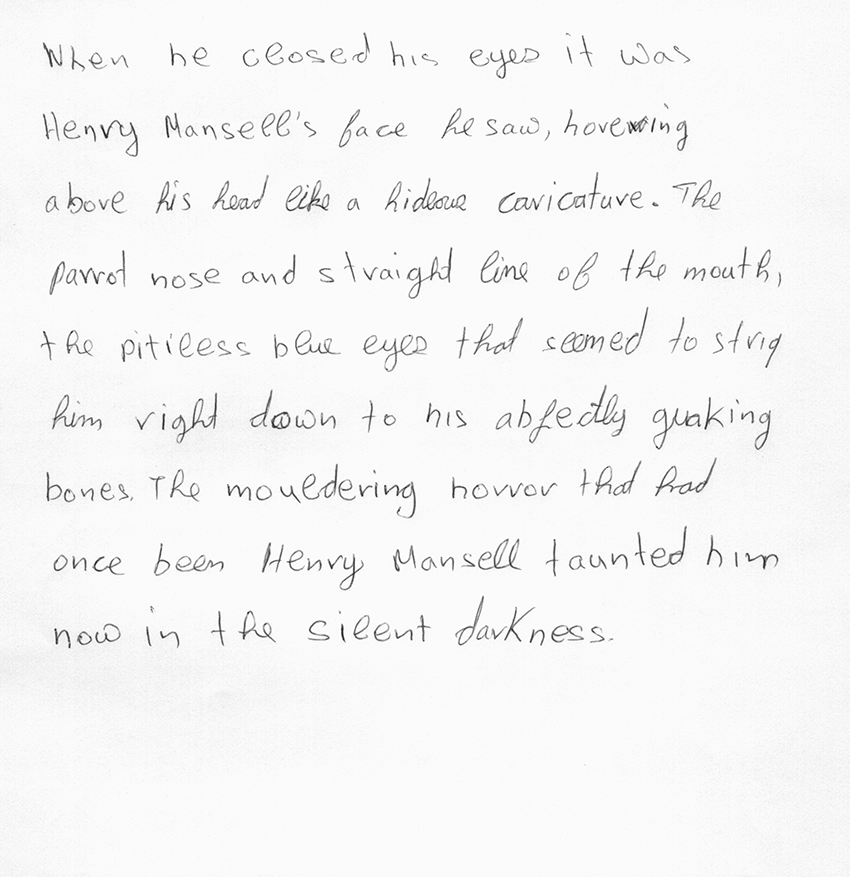 When he closed his eyes it was
Henry Mansell's face he saw, hovering
above his head like a hideous caricature. The
parrot nose and straight line of the mouth,
the pitiless blue eyes that seemed to strip
him right down to his abjectly quaking
bones. The mouldering horror that had
once been Henry Mansell taunted him
now in the silent darkness.